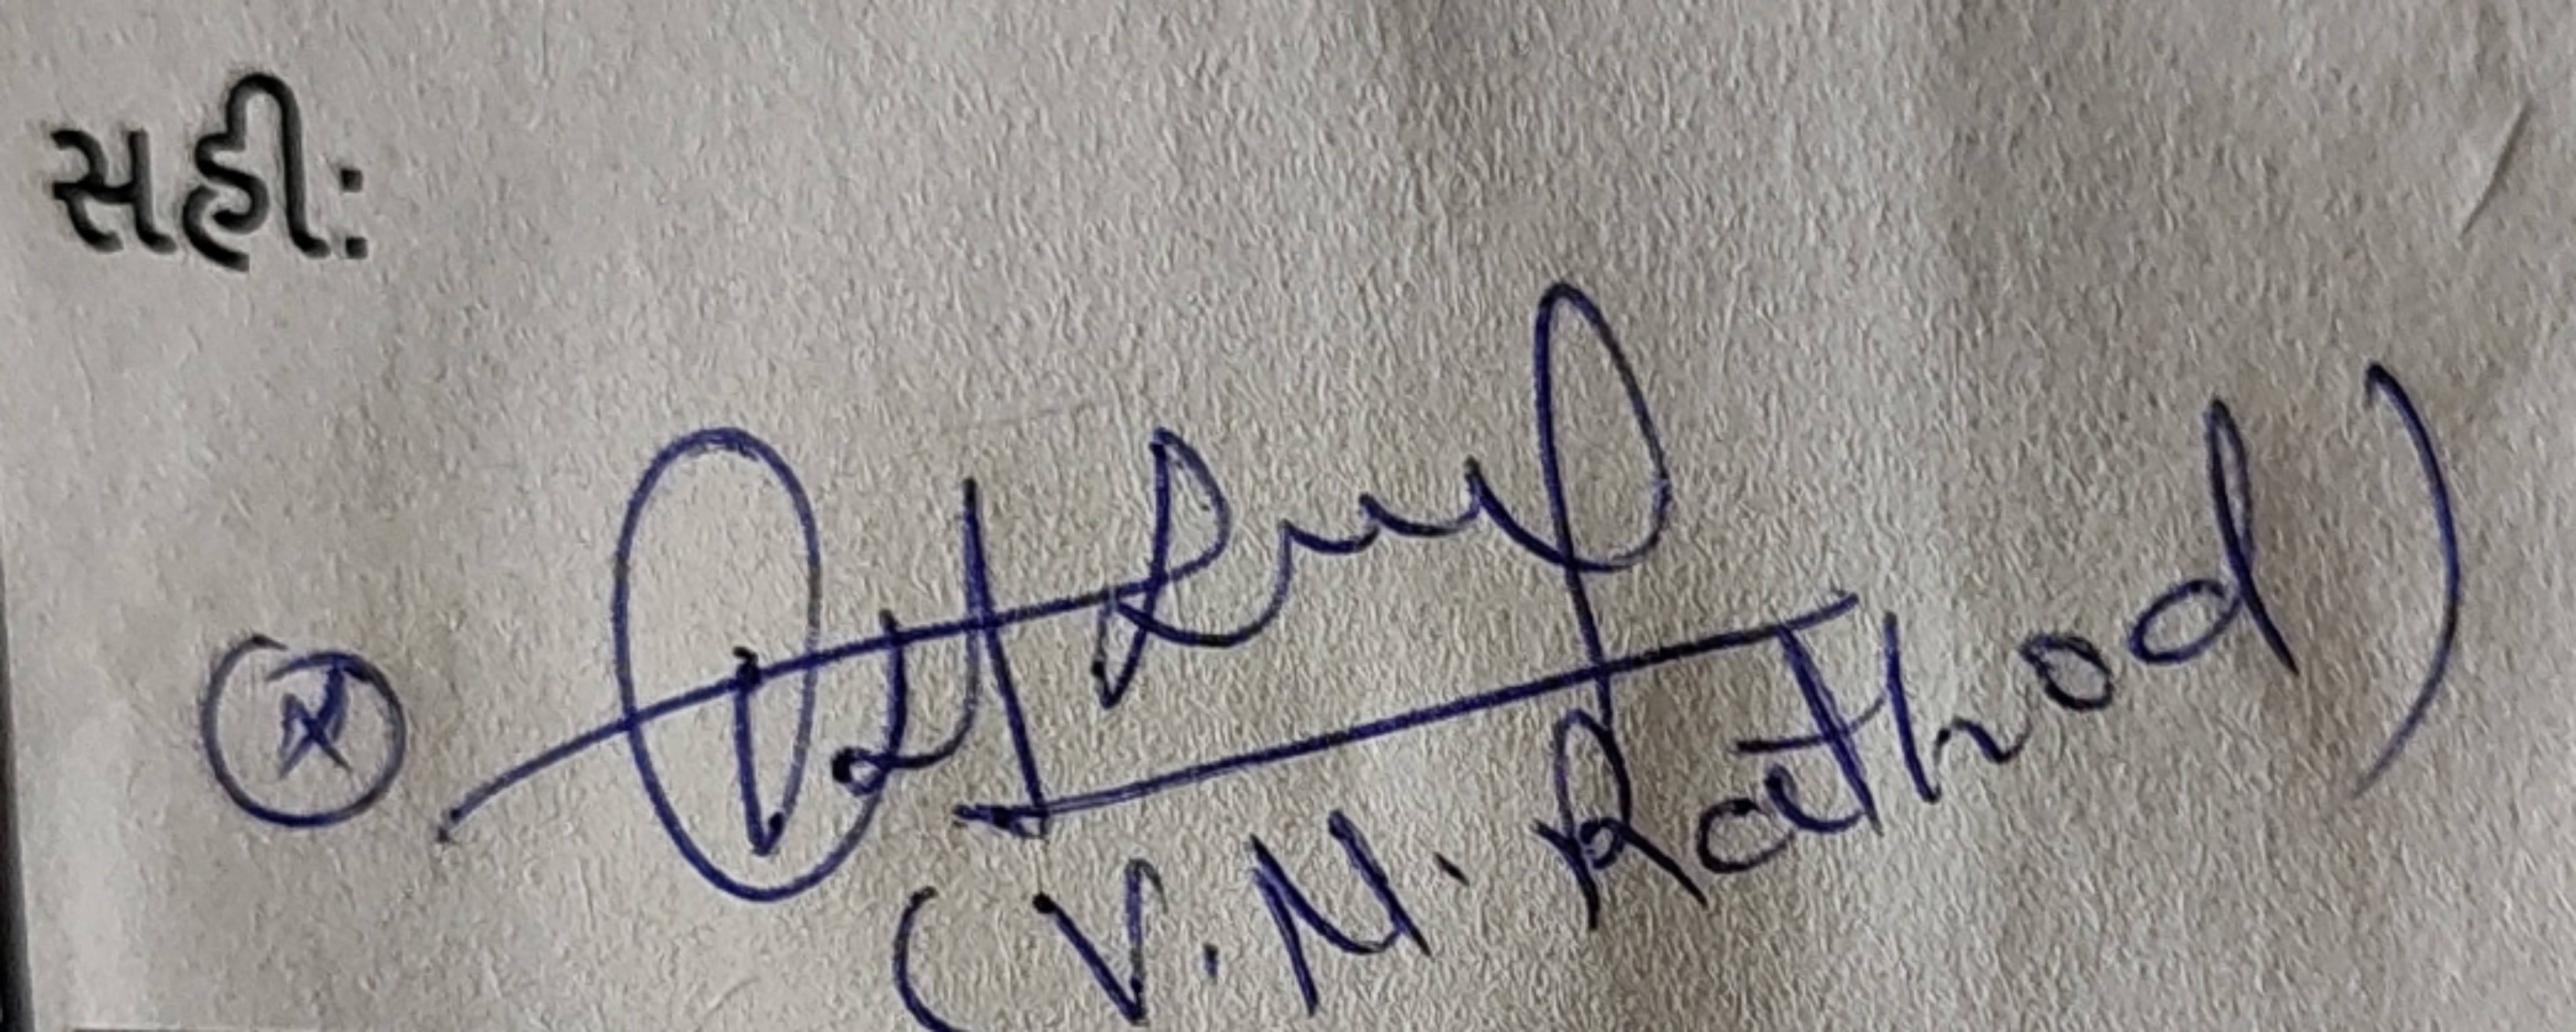 સહીઃ
(V.M. Rathod)